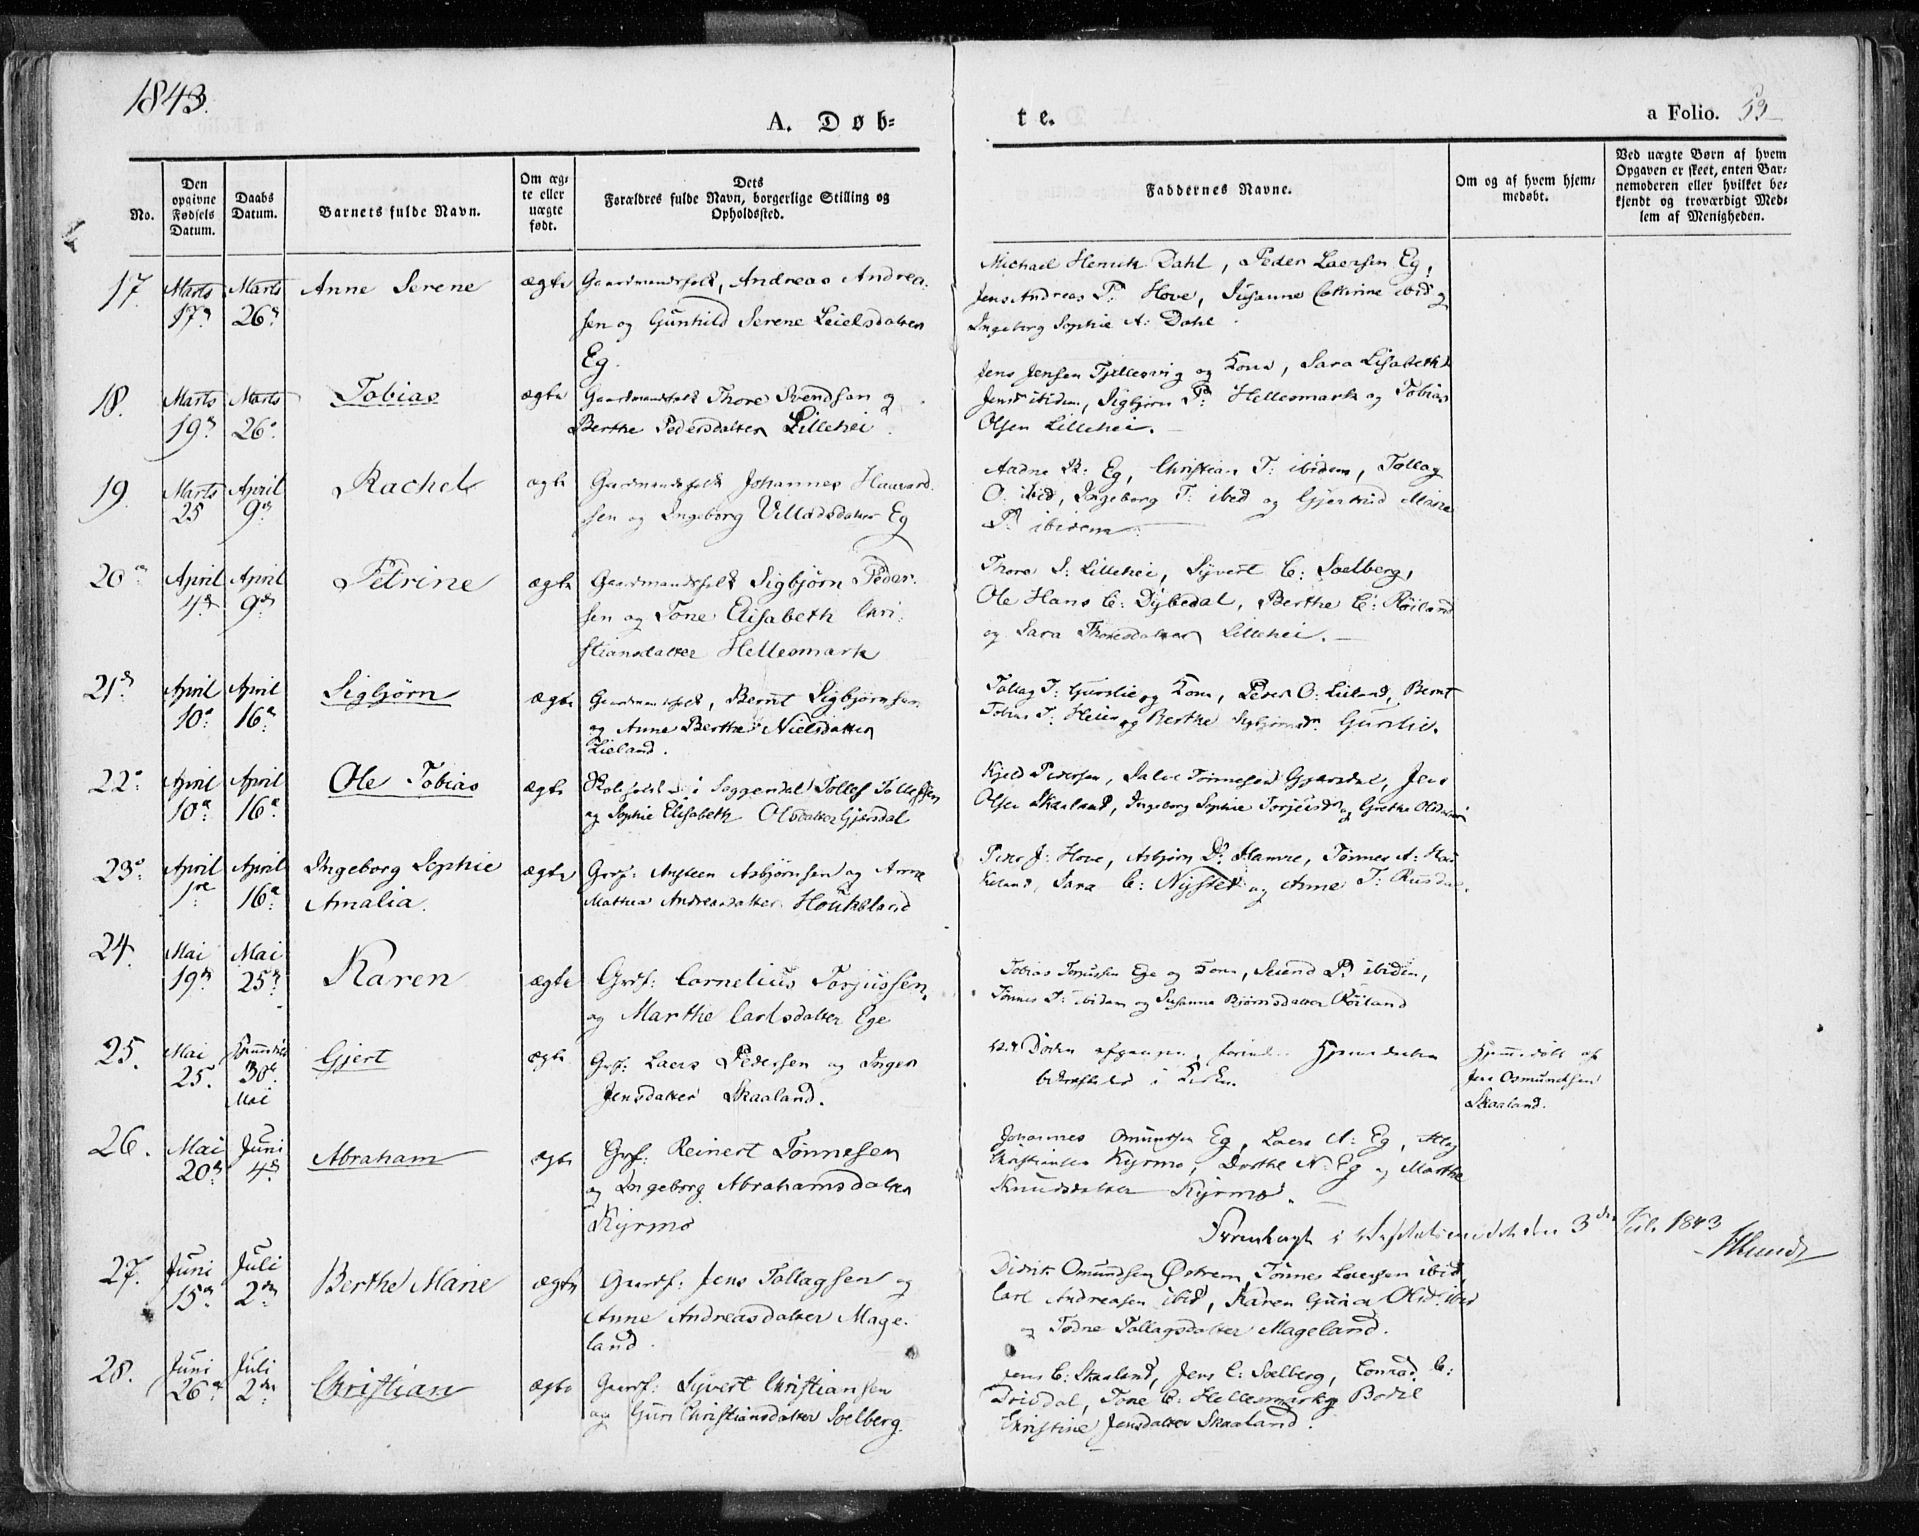 1843.
A. Døb-
te.
a Folio. 53
No.
Den opgivne Fødsels Datum.
Daabs Datum.
Barnets fulde Navn.
Om ægte eller uægte født.
Dets Forældres fulde Navn, borgerlige Stilling og Opholdssted.
Faddernes Navne.
Om og af hvem hjemmedøbt.
Ved uægte Børn af hvem Opgaven er skeet, enten Barnemoderen eller hvilket bekjendt og troværdigt Medlem af Menigheden.
17. Marts 17de Marts 26de Anne Serene ægte Gaardmandsfolk, Andreas Andrea-
sen og Gunhild Serene Leielsdatter
Eg.
Michael Henrik Dahl, Peder Laersen Eg,
Jens Andreas P. Hove, Susanne Cathrine ibid og
Ingeborg Sophie A: Dahl.
18. Marts 19de Marts 26de Tobias ægte Gaardmandsfolk Thore Svendsen og
Berthe Pedersdatter Lillehei.
Jens Jensen Tjellesvig og Kone, Sara Lisabeth
Jensd. ibidem, Sigbjørn P: Hellesmark og Tobias
Olsen Lillehei.
19. Marts 25 April 9de Rachel ægte Gaardmandsfolk Johannes Haavard-
sen og Ingeborg Villadsdatter Eg
Aadne R: Eg, Christian T: ibidem, Tollag
O. ibid, Ingeborg T: ibid og Gjertrud Marie
P. ibidem
20de April 4de April 9de Petrine ægte Gaardmandsfolk Sigbjørn Peder-
sen og Tone Elisabeth Chri-
stiansdatter Hellesmark
Thore S: Lillehei, Sivert C: Soelberg,
Ole Hans C: Dybedal, Berthe C: Røiland
og Sara Thoresdatter Lillehei.
21de April 10de April 16de Sigbjørn ægte Gaardmandsfolk, Bernt Sigbjørnsen
og Anne Berthe Nielsdatter
Lieland.
Tollag T: Gurslie og Kone, Peder O: Lieland, Bernt
Tobias T: Heien og Berthe Sigbjørnsd. Gurslie.
22de April 10de April 16de Ole Tobias ægte i Soggendal Tollef Tollefsen
og Sophie Elisabeth Olsdatter Gjersdal
Kjeld Pedersen, Salve Tønnesen Gjersdal, Jens
Olsen Skaaland, Ingeborg Sophie Torjeisd. og Grethe
23de April 1re April 16de Ingeborg Sophie
Amalia. ægte Grdf: Austeen Asbjørnsen og Anne
Mathea Andreasdatter Houkeland
Peder J: Hove, Asbjørn D. Hamre, Tønnes A: Hou-
keland, Sara C: Nysted og Anne T: Rusdal.
24. Mai 19de Mai 25de Karen ægte Grdf: Cornelius Torjussen
og Marthe Carlsdatter Ege
Tobias Torjussen Ege og Kone, Svend P. ibidem,
Tønnes T: ibidem og Susanne Bjørnsdatter Røiland
25. Mai 25. 30te Mai Gjert ægte Grdf: Laers Pedersen og Inger
Jensdatter Skaaland.
Ved Døden afgangen, forinden Hjemmedaaben
bekræftedes i Kirken.
Hjemmedøbt af
Jens Osmundsen
Skaaland.
26. Mai 20de Juni 4de Abraham ægte Grdf: Reinert Tønnesen
og Ingeborg Abrahamsdatter
Kyrmo
Johannes Omundsen Eg, Laers N: Eg,
Christiansen Kyrmo, Dorthe N: Eg og Marthe
Knudsdatter Kyrmo.
3die Juli 1843
27. Juni 15de Juli 2den Berthe Marie ægte Gaardf: Jens Tollagsen og
Anne Andreasdatter Mage-
land.
Didrik Omundsen Østrem, Tønnes Laersen ibid,
Carl Andreasen ibid, Karen Guria Olsd. ibid
og Todne Tollagsdatter Mageland.
28. Juni 26de Juli 2den Christian ægte Gaardf: Sivert Christiansen
og Guri Christiansdatter Soelberg.
Jens C: Skaaland, Jens C: Soelberg, Conrad C:
Drivdal, Tone C: Hellesmark og Bodil
Christine Jensdatter Skaaland.